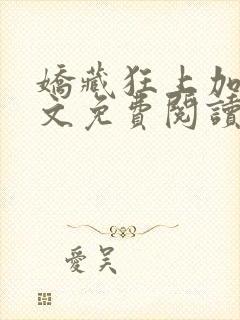 嬌藏狂上加
文免費閱讀
愛吴